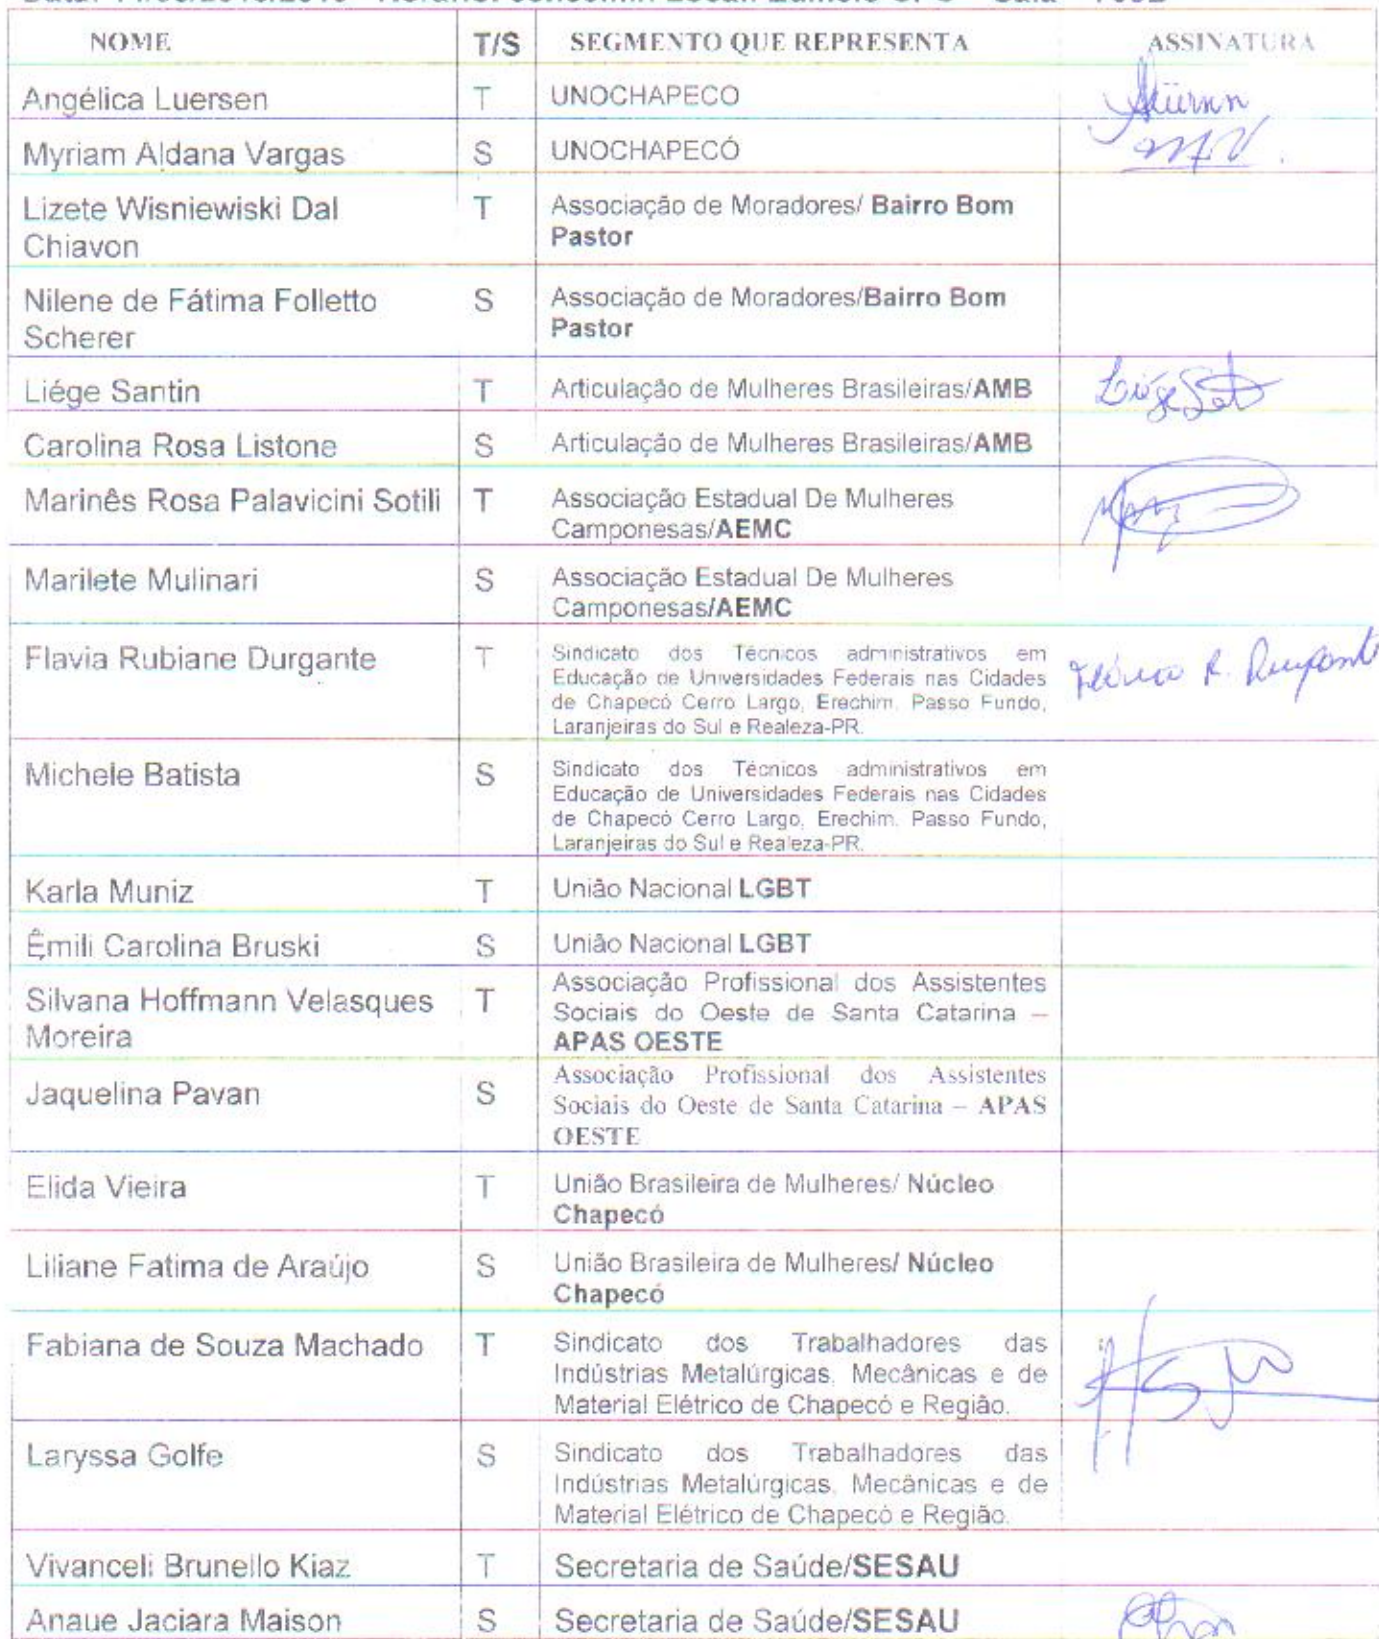 NOME T/S SEGMENTO QUE REPRESENTA ASSINATURA
Angélica Luersen T UNOCHAPECO
Myriam Aldana Vargas S UNOCHAPECÓ
Lizete Wisniewiski Dal T Associação de Moradores/ Bairro Bom
Chiavon Pastor
Nilene de Fátima Folletto S Associação de Moradores/Bairro Bom
Scherer Pastor
Liége Santin T Articulação de Mulheres Brasileiras/AMB
Carolina Rosa Listone S Articulação de Mulheres Brasileiras/AMB
Marinês Rosa Palavicini Sotili T Associação Estadual De Mulheres
Camponesas/AEMC
Marilete Mulinari S Associação Estadual De Mulheres
Camponesas/AEMC
Flavia Rubiane Durgante T Sindicato dos Técnicos administrativos em
Educação de Universidades Federais nas Cidades
de Chapecó Cerro Largo, Erechim, Passo Fundo,
Laranjeiras do Sul e Realeza-PR.
Michele Batista S Sindicato dos Técnicos administrativos em
Educação de Universidades Federais nas Cidades
de Chapecó Cerro Largo, Erechim, Passo Fundo,
Laranjeiras do Sul e Realeza-PR.
Karla Muniz T União Nacional LGBT
Êmili Carolina Bruski S União Nacional LGBT
Silvana Hoffmann Velasques T Associação Profissional dos Assistentes
Moreira Sociais do Oeste de Santa Catarina –
APAS OESTE
Jaquelina Pavan S Associação Profissional dos Assistentes
Sociais do Oeste de Santa Catarina – APAS
OESTE
Elida Vieira T União Brasileira de Mulheres/ Núcleo
Chapecó
Liliane Fatima de Araújo S União Brasileira de Mulheres/ Núcleo
Chapecó
Fabiana de Souza Machado T Sindicato dos Trabalhadores das
Indústrias Metalúrgicas, Mecânicas e de
Material Elétrico de Chapecó e Região.
Laryssa Golfe S Sindicato dos Trabalhadores das
Indústrias Metalúrgicas, Mecânicas e de
Material Elétrico de Chapecó e Região.
Vivanceli Brunello Kiaz T Secretaria de Saúde/SESAU
Anaue Jaciara Maison S Secretaria de Saúde/SESAU